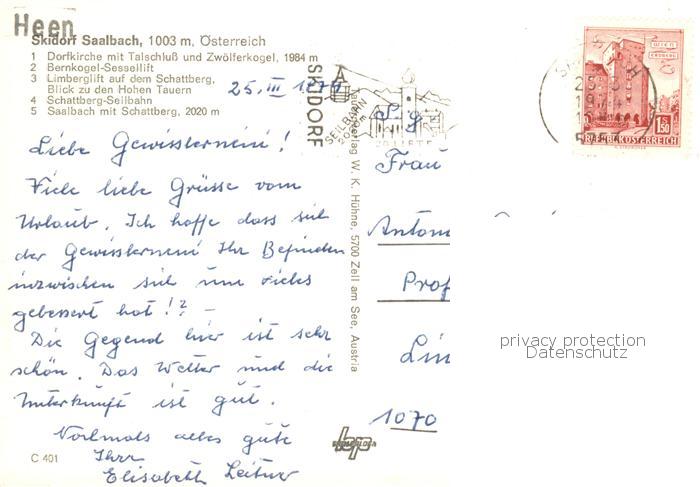 Heen
Skidorf Saalbach, 1003 m, Österreich
1 Dorfkirche mit Talschluß und Zwölferkogel, 1984 m
2 Bernkogel-Sessellift
3 Limberglift auf dem Schattberg,
Blick zu den Hohen Tauern
4 Schattberg-Seilbahn
5 Saalbach mit Schattberg, 2020 m
25. III 1974
Liebe
Viele liebe Grüsse vom
Urlaub. Ich hoffe dass sich
der Ihr Befinden
inzwischen sich um vieles
gebessert hat!? –
Die Gegend hier ist sehr
schön. Das Wetter und die
Unterkunft ist gut.
Nochmals alles gute
Ihre
Elisabeth Leitner
C 401
SKIDORF
SEILBAHN
Verlag W. K. Hühne, 5700 Zell am See, Austria
S. g.
Frau
Anton
Prof
Lin
1070
WIEN
ERDBERG
1.50
REPUBLIK ÖSTERREICH
privacy protection
Datenschutz